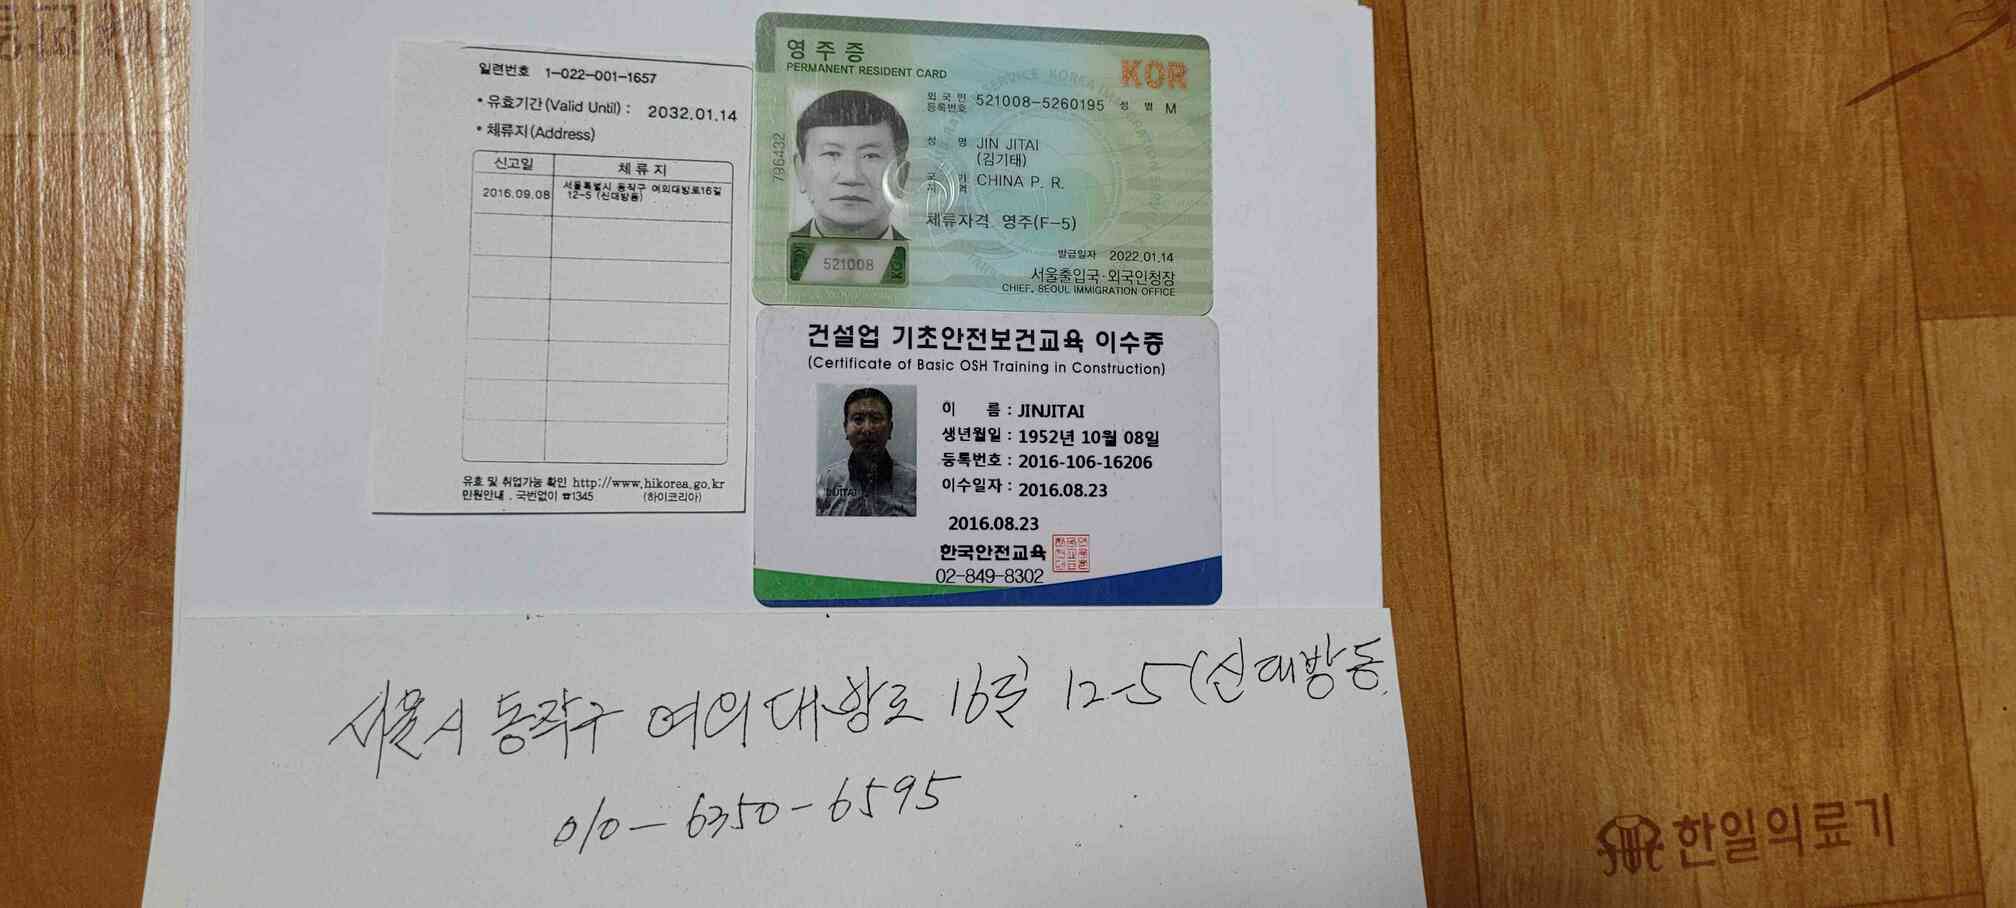 일련번호 1-022-001-1657
• 유효기간(Valid Until) : 2032.01.14
• 체류지(Address)
신고일 체 류 지
2016.09.08 서울특별시 동작구 여의대방로16길
12-5 (신대방동)
유효 및 취업가능 확인 http://www.hikorea.go.kr
민원안내 . 국번없이 ☎1345 (하이코리아)
영 주 증
PERMANENT RESIDENT CARD
KOR
외국인
등록번호 521008-5260195 성 별 M
성 명 JIN JITAI
(김기태)
국 가
지 역 CHINA P. R.
체류자격 영주(F-5)
발급일자 2022.01.14
서울출입국·외국인청장
CHIEF, SEOUL IMMIGRATION OFFICE
796432
521008
건설업 기초안전보건교육 이수증
(Certificate of Basic OSH Training in Construction)
이 름 : JINJITAI
생년월일 : 1952년 10월 08일
등록번호 : 2016-106-16206
이수일자 : 2016.08.23
JINJITAI
2016.08.23
한국안전교육
02-849-8302
서울시 동작구 여의대방로 16길 12-5 (신대방동
010-6350-6595
한일의료기